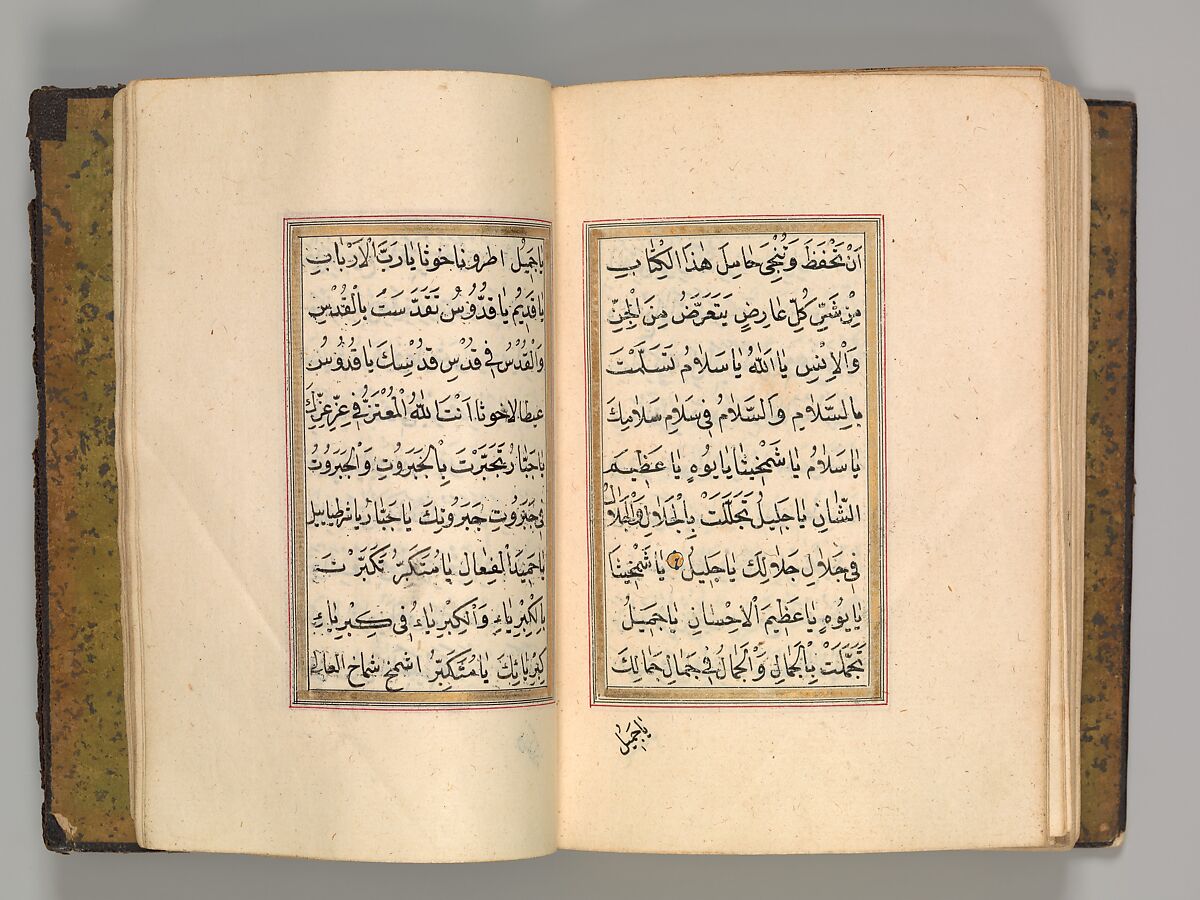 اَنْ تَحْفَظَ وَتُنْجِیَ حَامِلَ هٰذَا الْكِتَابِ
مِنْ شَرِّ كُلِّ عَارِضٍ يَتَعَرَّضُ مِنَ الْجِنِّ
وَالْاِنْسِ يَا اَللّٰهُ يَا سَلَامُ تَسَلَّمْتَ
بِالسَّلَامِ وَالسَّلَامُ فِی سَلَامِ سَلَامِكَ
يَا سَلَامُ يَا شَمْخِيثَا يَا يُوهٍ يَا عَظِيمَ
الشَّانِ يَا جَلِيلُ تَجَلَّلْتَ بِالْجَلَالِ وَالْجَلَالُ
فِی جَلَالِ جَلَالِكَ يَا جَلِيلُ ٢ يَا شَمْخِيثَا
يَا يُوهٍ يَا عَظِيمَ الْاِحْسَانِ يَا جَمِيلُ
تَجَمَّلْتَ بِالْجَمَالِ وَالْجَمَالُ فِی جَمَالِ جَمَالِكَ
يَا جَمِيلُ
يَا جَمِيلُ اطرونا خوثا يَا رَبَّ الْاَرْبَابِ
يَا قَدِيمُ يَا قُدُّوسُ تَقَدَّسْتَ بِالْقُدْسِ
وَالْقُدْسُ فِی قُدْسِ قُدْسِكَ يَا قُدُّوسُ
عيطالاخوثا اَنْتَ اللّٰهُ الْمُعْتَزُّ فِی عِزِّ عِزِّكَ
يَا جَبَّارُ تَجَبَّرْتَ بِالْجَبَرُوتِ وَالْجَبَرُوتُ
فِی جَبَرُوتِ جَبَرُوتِكَ يَا جَبَّارُ
يَا حَمِيدَ الْفِعَالِ يَا مُتَكَبِّرُ تَكَبَّرْتَ
بِالْكِبْرِيَاءِ وَالْكِبْرِيَاءُ فِی كِبْرِيَاءِ
كِبْرِيَائِكَ يَا مُتَكَبِّرُ اشمخ شماخ العالی